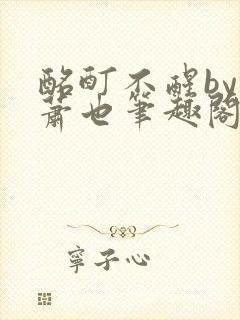 酩酊不醒by
萧也笔趣阁
宁子心